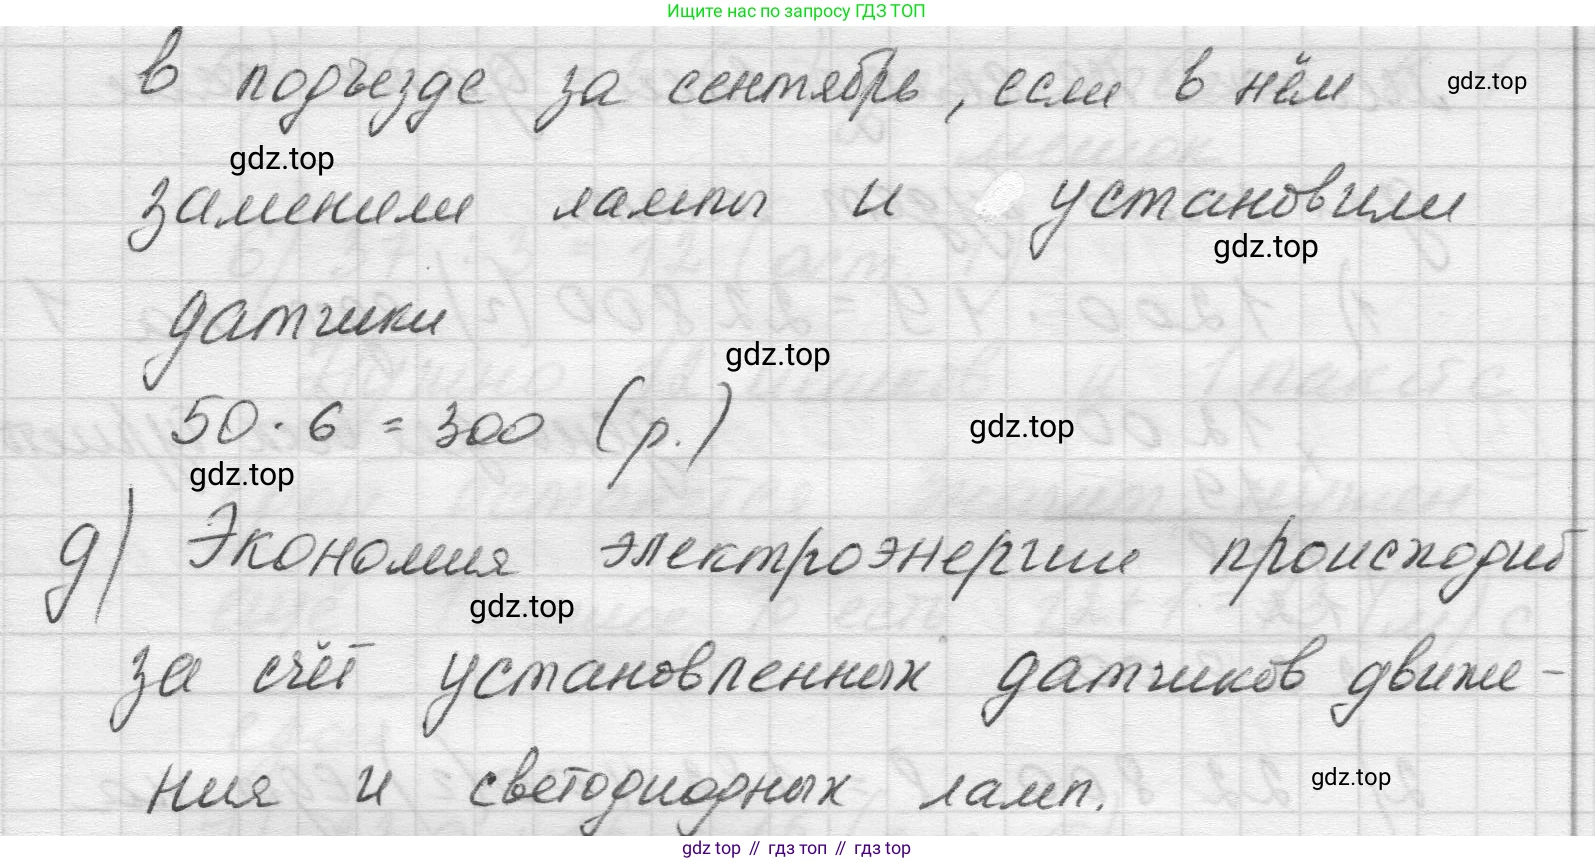 Ищите нас по запросу ГДЗ ТОП
в подъезде за сентябрь, если в нём
gdz.top
gdz.top
заменили лампы и установили
gdz.top
датчики
gdz.top
50 · 6 = 300 (р.)
gdz.top
gdz.top
д) Экономия электроэнергии происходит
gdz.top
за счёт установленных датчиков движе-
ния и светодиодных ламп.
gdz.top
gdz.top // гдз топ // гдз top